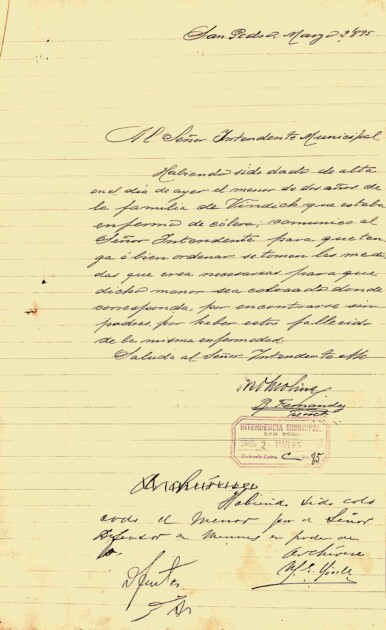 San Pedro, Marzo 2/895
Al Señor Intendente Municipal
Habiendo sido dado de alta
en el dia de ayer el menor de dos años de
la familia de que estaba
enfermo de cólera; comunico al
Señor Intendente para que ten-
ga ó bien ordenar se tomen las medi-
das que crea necesarias para que
dicho menor sea colocado donde
corresponda, por encontrarse sin
padres, por haber estos fallecido
de la misma enfermedad.
Saluda al Señor Intendente
Molina
Fernandez
INTENDENCIA MUNICIPAL
SAN PEDRO
2 MAR 95
95
Habiendo sido colo
cado el menor por el Señor
Defensor de Menores en poder de
archívese